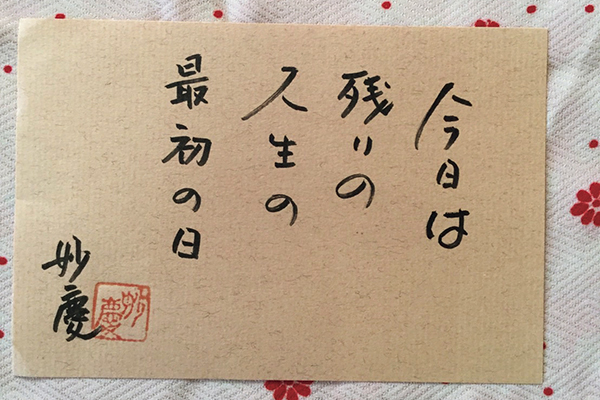 今日は
残りの
人生の
最初の日
妙慶
妙慶